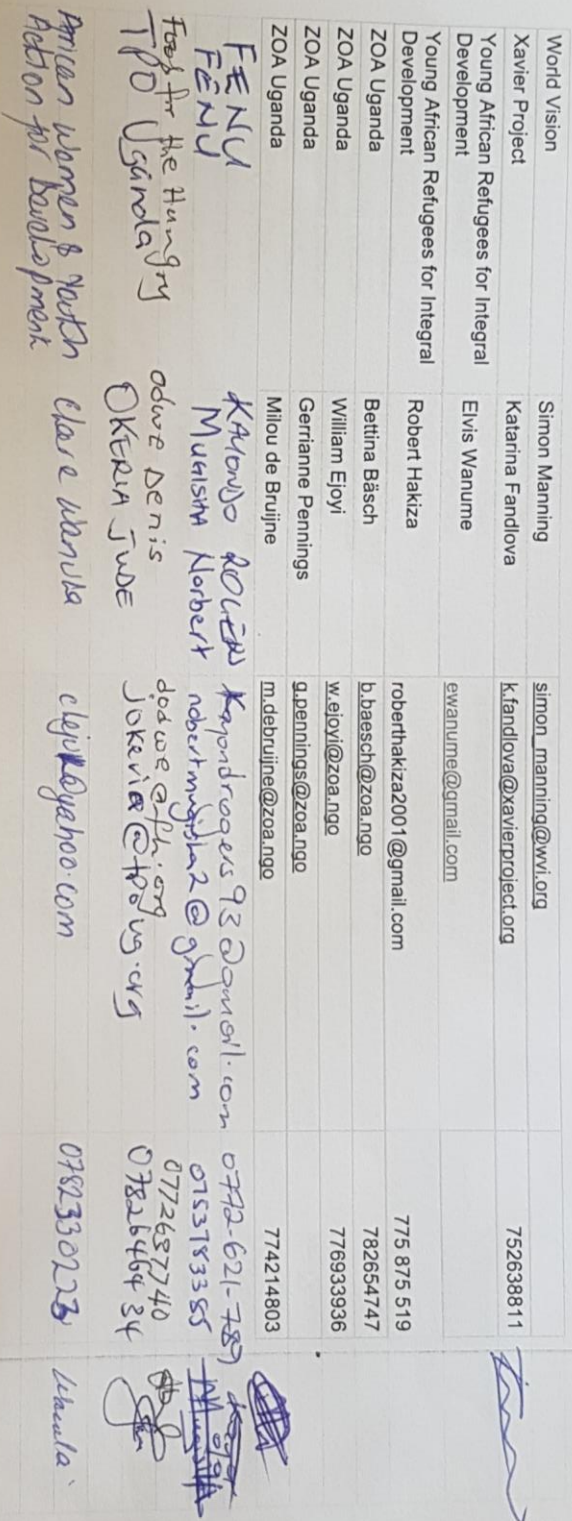 World Vision Simon Manning simon_manning@wvi.org
Xavier Project Katarina Fandlova k.fandlova@xavierproject.org 752638811
Young African Refugees for Integral
Development Elvis Wanume ewanume@gmail.com
Young African Refugees for Integral
Development Robert Hakiza roberthakiza2001@gmail.com 775 875 519
ZOA Uganda Bettina Bäsch b.baesch@zoa.ngo 782654747
ZOA Uganda William Ejoyi w.ejoyi@zoa.ngo 776933936
ZOA Uganda Gerrianne Pennings g.pennings@zoa.ngo
ZOA Uganda Milou de Bruijne m.debruijne@zoa.ngo 774214803
FENU KAYONDO ROGERS Kayondrogers93@gmail.com 0772-621-789
FENU MUGISHA Norbert nobertmugisha2@gmail.com 0753783385
Food for the Hungry odwe Denis dodwe@fh.org 0772687740
TPO Uganda OKERIA JUDE jokeria@tpoug.org 0782646434
African Women & Youth
Action for Development Clare Wanula @yahoo.com Wanula